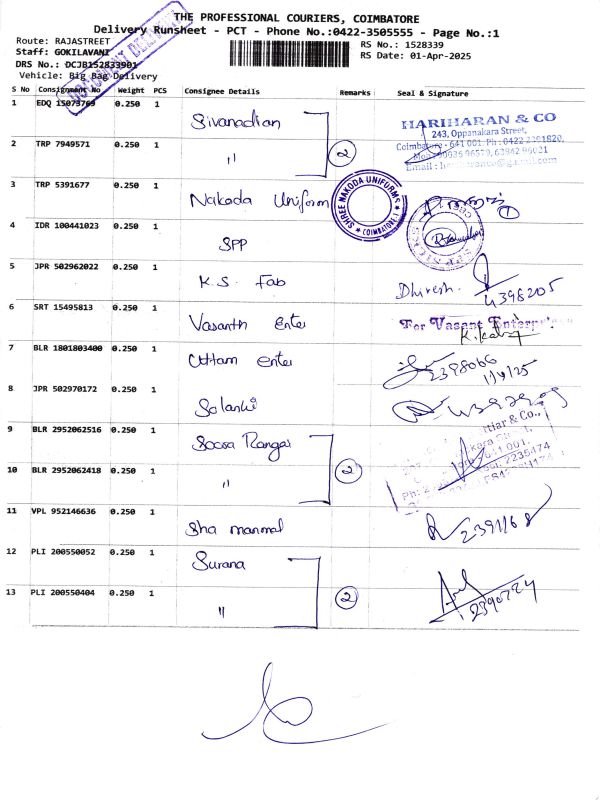 THE PROFESSIONAL COURIERS, COIMBATORE
Delivery Runsheet - PCT - Phone No.:0422-3505555 - Page No.:1
Route: RAJASTREET
RS No.: 1528339
Staff: GOKILAVANI
RS Date: 01-Apr-2025
DRS No.: DCJB152833901
Vehicle: Big Bag Delivery
DELIVERY
S No Consignment No Weight PCS Consignee Details Remarks Seal & Signature
1 EDQ 15073769 0.250 1 Sivanadian
HARIHARAN & CO
243, Oppanakara Street,
Coimbatore - 641 001. Ph : 0422-2391820,
2 TRP 7949571 0.250 1 " 2
3 TRP 5391677 0.250 1 Nakoda Uniform
SHREE NAKODA UNIFORMS
COIMBATORE
1
4 IDR 100441023 0.250 1 SPP
5 JPR 502962022 0.250 1 K.S. Fab
Dhiresh. 4398205
6 SRT 15495813 0.250 1 Vasanth Enter
For Vasant Enterprise
7 BLR 1801803400 0.250 1 Uttam Enter
2398066
1/4/25
8 JPR 502970172 0.250 1 Solanki
9 BLR 2952062516 0.250 1 Soosa Rangai
ttiar & Co.,
641 001.
2235474
10 BLR 2952062418 0.250 1 " 2
11 VPL 952146636 0.250 1 Sha manmal
2391168
12 PLI 200550052 0.250 1 Surana
13 PLI 200550404 0.250 1 " 2
2390724